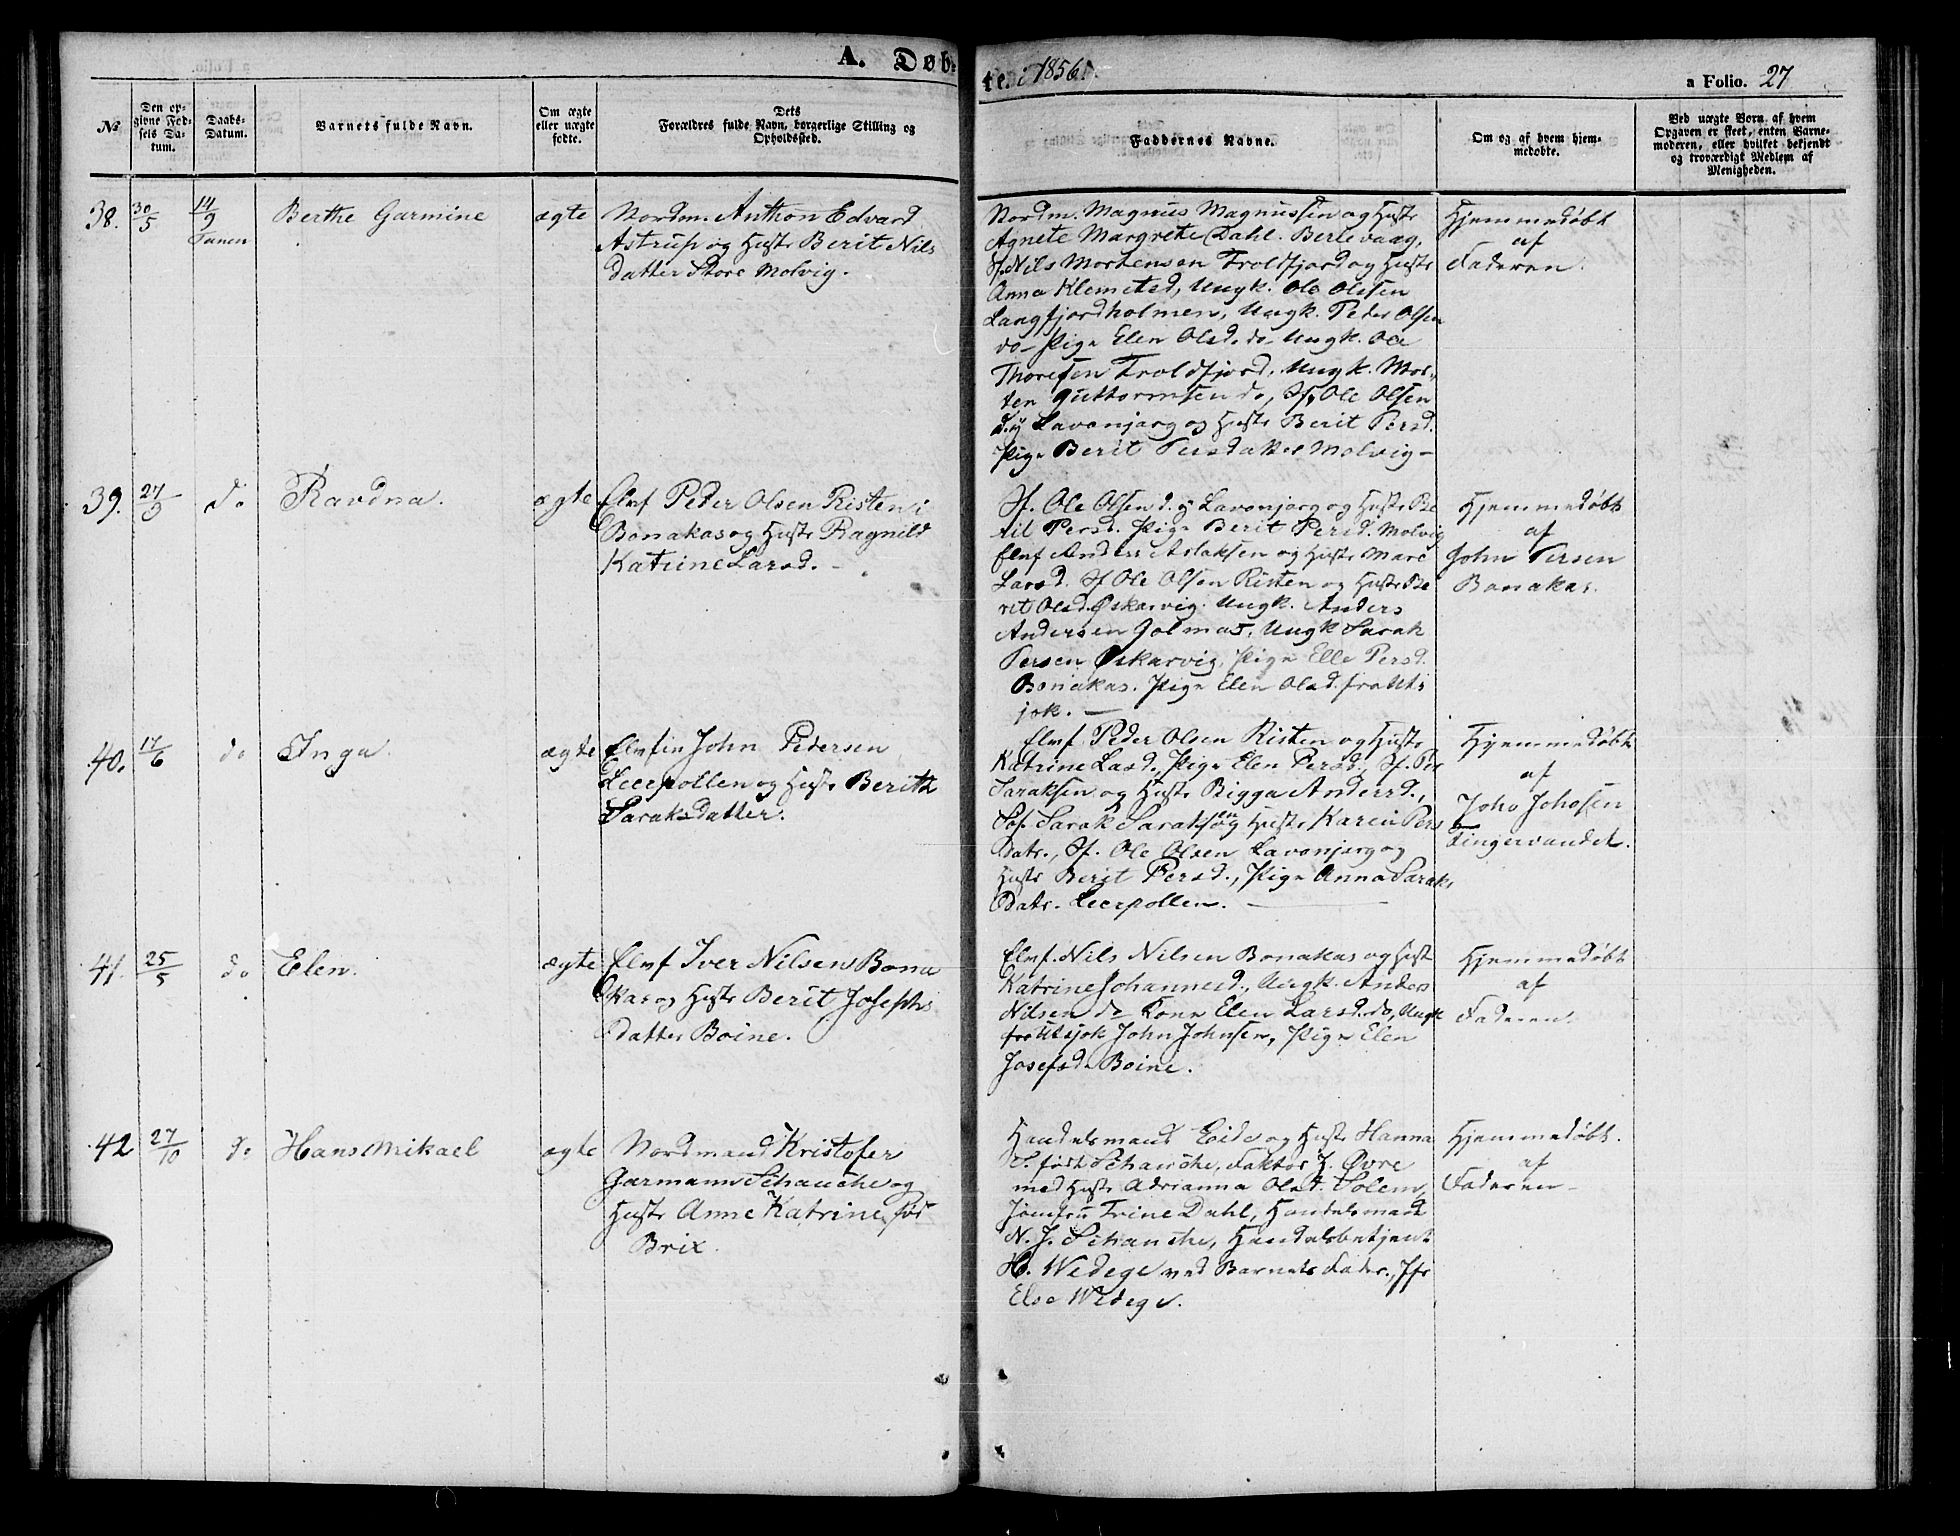 A. Døb-
te i 1856.
a Folio. 27
№
Den op-
givne Fød-
sels Da-
tum.
Daabs-
Datum.
Barnets fulde Navn.
Om ægte
eller uægte
fødte.
Dets
Forældres fulde Navn, borgerlige Stilling og
Opholdssted.
Faddernes Navne.
Om og af hvem hjem-
medøbte.
Ved uægte Børn af hvem
Opgaven er skeet, enten Barne-
moderen, eller hvilket bekjendt
og troværdigt Medlem af
Menigheden.
38. 30/5 14/9 Tanen
Berthe Garmine
ægte
Nordm. Anthon Edvard
Astrup og Hustr Berit Nils
datter Store Molvig.
Nordm. Magnus Magnussen og Hustr
Agnete Margrethe Dahl. Berlevaag,
Sf. Nils Mortensen Troldfjord og Hustr
Anna Klemetsd, Ungk. Ole Olsen
Langfjordholmen, Ungk. Peder Olsen
do- Pige Elen Olsd. do- Ungk. Ole
Thoresen Troldfjord, Ungk. Mor-
ten Guttormsen do, Sf. Ole Olsen
d.y Lavonjarg og Hustr Berit Persd.
Pige Berit Persdatter Molvig-
Hjemmedøbt
af
Faderen.
39. 27/9 do
Ravdna.
ægte
Elvf Peder Olsen Risten i
Bonakas og Hustr Ragnild
Katrine Larsd. -
Sf. Ole Olsen d.y Lavonjarg og Hustr Be
rit Persd. Pige Berit Persd. Molvig
Elvf Anders Aslaksen og Hustr Mare
Larsd. Sf Ole Olsen Risten og Hustr Be
ret Olsd. Øskarvig. Ungk. Anders
Andersen Golmas, Ungk Sarak
Persen Øskarvig, Pige Elle Persd.
Bonakas. Pige Elen Olsd. fra Uts
jok. -
Hjemmedøbt
af
John Persen
Bonakas.
40. 17/6 do
Inga.
ægte
Elvfin John Pedersen
Leerpollen og Hustr Berith
Saraksdatter.
Elvf. Peder Olsen Risten og Hustr
Katrine Lasd., Pige Elen Persd, Sf. Per
Saraksen og Hustr Bigga Andersd.,
Sof. Sarak Saraksen og Hustr Karen Pers
Datr., Sf. Ole Olsen Lavonjarg og
Hustr Berit Persd., Pige Anna Sarak,
Datr. Leerpollen.
Hjemmedøbt
af
Joho Johosen
Fingervandet.
41. 25/5 do
Elen.
ægte
Elvf Iver Nilsen Bona
kas og Hustr Berit Josephs
datter Boine.
Elvf. Nils Nilsen Bonakas og Hust
Katrine Johannesd., Ungk. Anders
Nilsen do Kone Elen Larsd. do, Ungk
fra Utsjok John Johnsen, Pige Elen
Josefsd. Boine.
Hjemmedøbt
af
Faderen.
42 27/10 do
Hans Mikael
ægte
Nordmand Kristofer
Garmann Schanche og
Hustr Anne Katrine, fød
Brix.
Handelsmand Eide og Hustr Hanna
S. født Schanche, Faktor J. Øvre
med Hustr Adrianna Olsd. Solem,
Jomfru Trine Dahl, Handelsmand
N. J. Schanche, Handelsbetjent
H. Wedege ved Barnets Fader., Jfr
Else Wedege.
Hjemmedøbt.
af
Faderen-